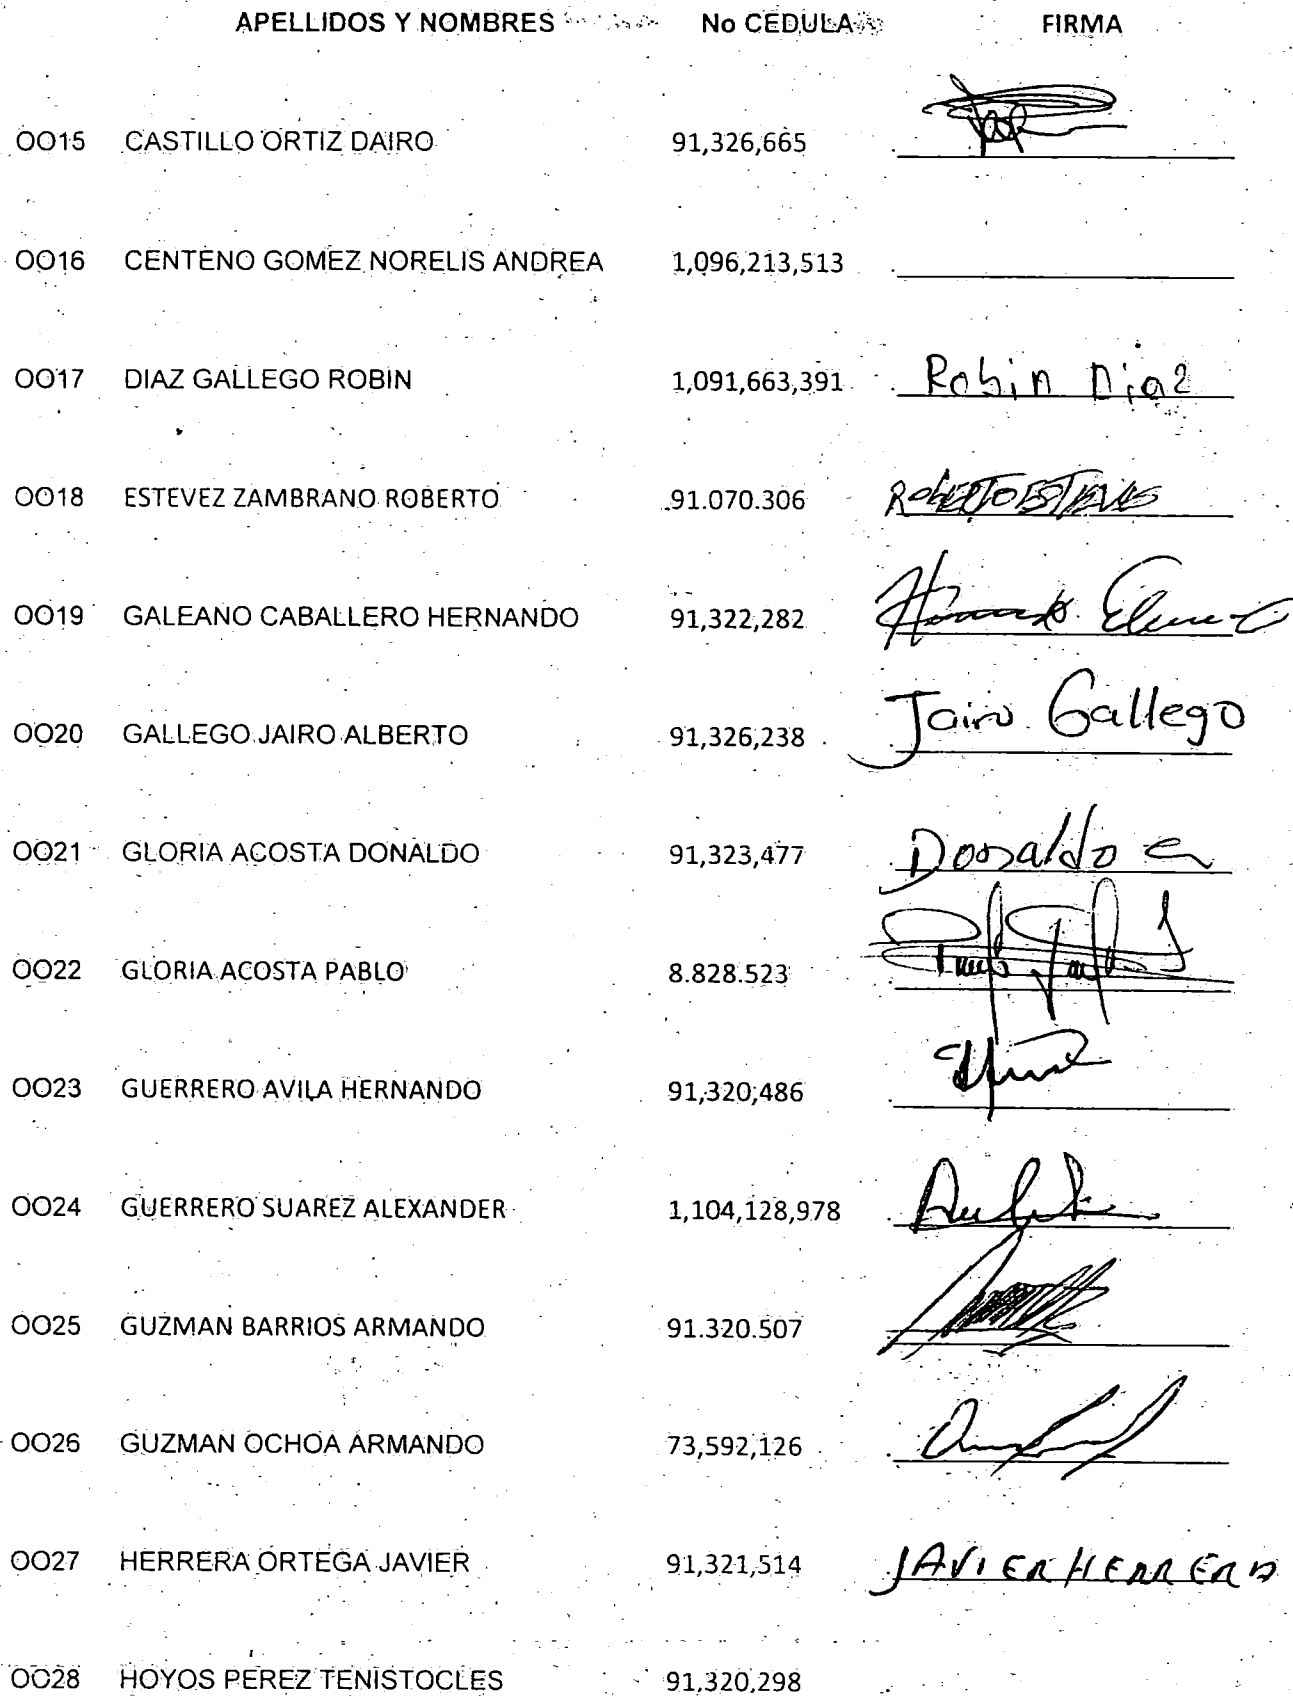 APELLIDOS Y NOMBRES No CEDULA FIRMA
OO15 CASTILLO ORTIZ DAIRO 91,326,665
OO16 CENTENO GOMEZ NORELIS ANDREA 1,096,213,513
OO17 DIAZ GALLEGO ROBIN 1,091,663,391 Robin Diaz
OO18 ESTEVEZ ZAMBRANO ROBERTO 91.070.306 ROBERTO
OO19 GALEANO CABALLERO HERNANDO 91,322,282
OO20 GALLEGO JAIRO ALBERTO 91,326,238 Jairo Gallego
OO21 GLORIA ACOSTA DONALDO 91,323,477 Donaldo
OO22 GLORIA ACOSTA PABLO 8.828.523
OO23 GUERRERO AVILA HERNANDO 91,320,486
OO24 GUERRERO SUAREZ ALEXANDER 1,104,128,978
OO25 GUZMAN BARRIOS ARMANDO 91.320.507
OO26 GUZMAN OCHOA ARMANDO 73,592,126
OO27 HERRERA ORTEGA JAVIER 91,321,514 JAVIER HERRERA
OO28 HOYOS PEREZ TENISTOCLES 91,320,298